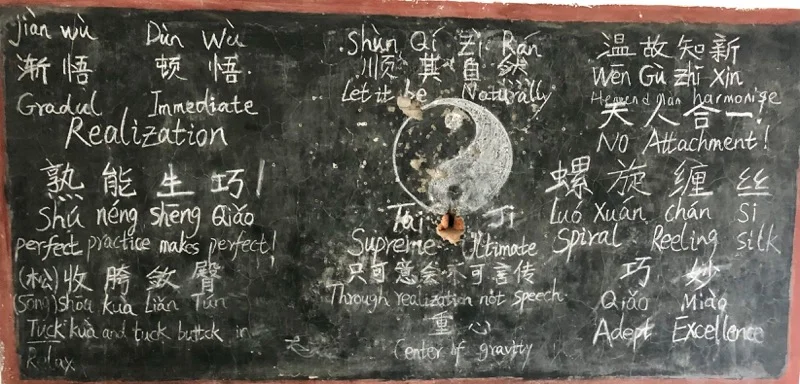 jiàn wù Dùn Wù
渐 悟 顿 悟.
Gradul Immediate
Realization
熟 能 生 巧!
Shú néng shēng Qiǎo
perfect practice makes perfect!
(松)收 胯 敛 臀
(Sōng)shōu kuà Liǎn Tún
Tuck kuà and tuck buttock in
Relax
Shùn Qí Zì Rán
顺 其 自 然
Let it be Naturally
Tai Ji
Supreme Ultimate
只可意会不可言传
Through realization not speech.
重 心
Center of gravtty
温 故 知 新
Wēn Gù zhī Xīn
Heaven and Man harmonise
天 人 合 一!
NO Attachment!
螺 旋 缠 丝
Luó Xuán chán Si
Spiral Reeling silk
巧 妙
Qiǎo Miào
Adept Excellence